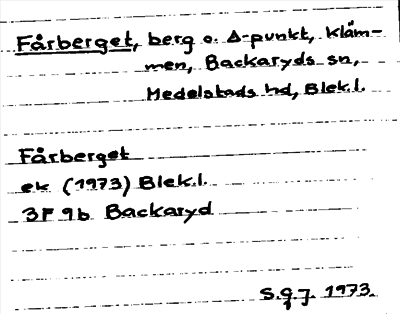 Fårberget, berg o. Δ-punkt, Kläm-
men, Backaryds sn,
Medelstads hd, Blek.l.
Fårberget
ek (1973) Blek.l.
3F 9b Backaryd
S.G.J. 1973.